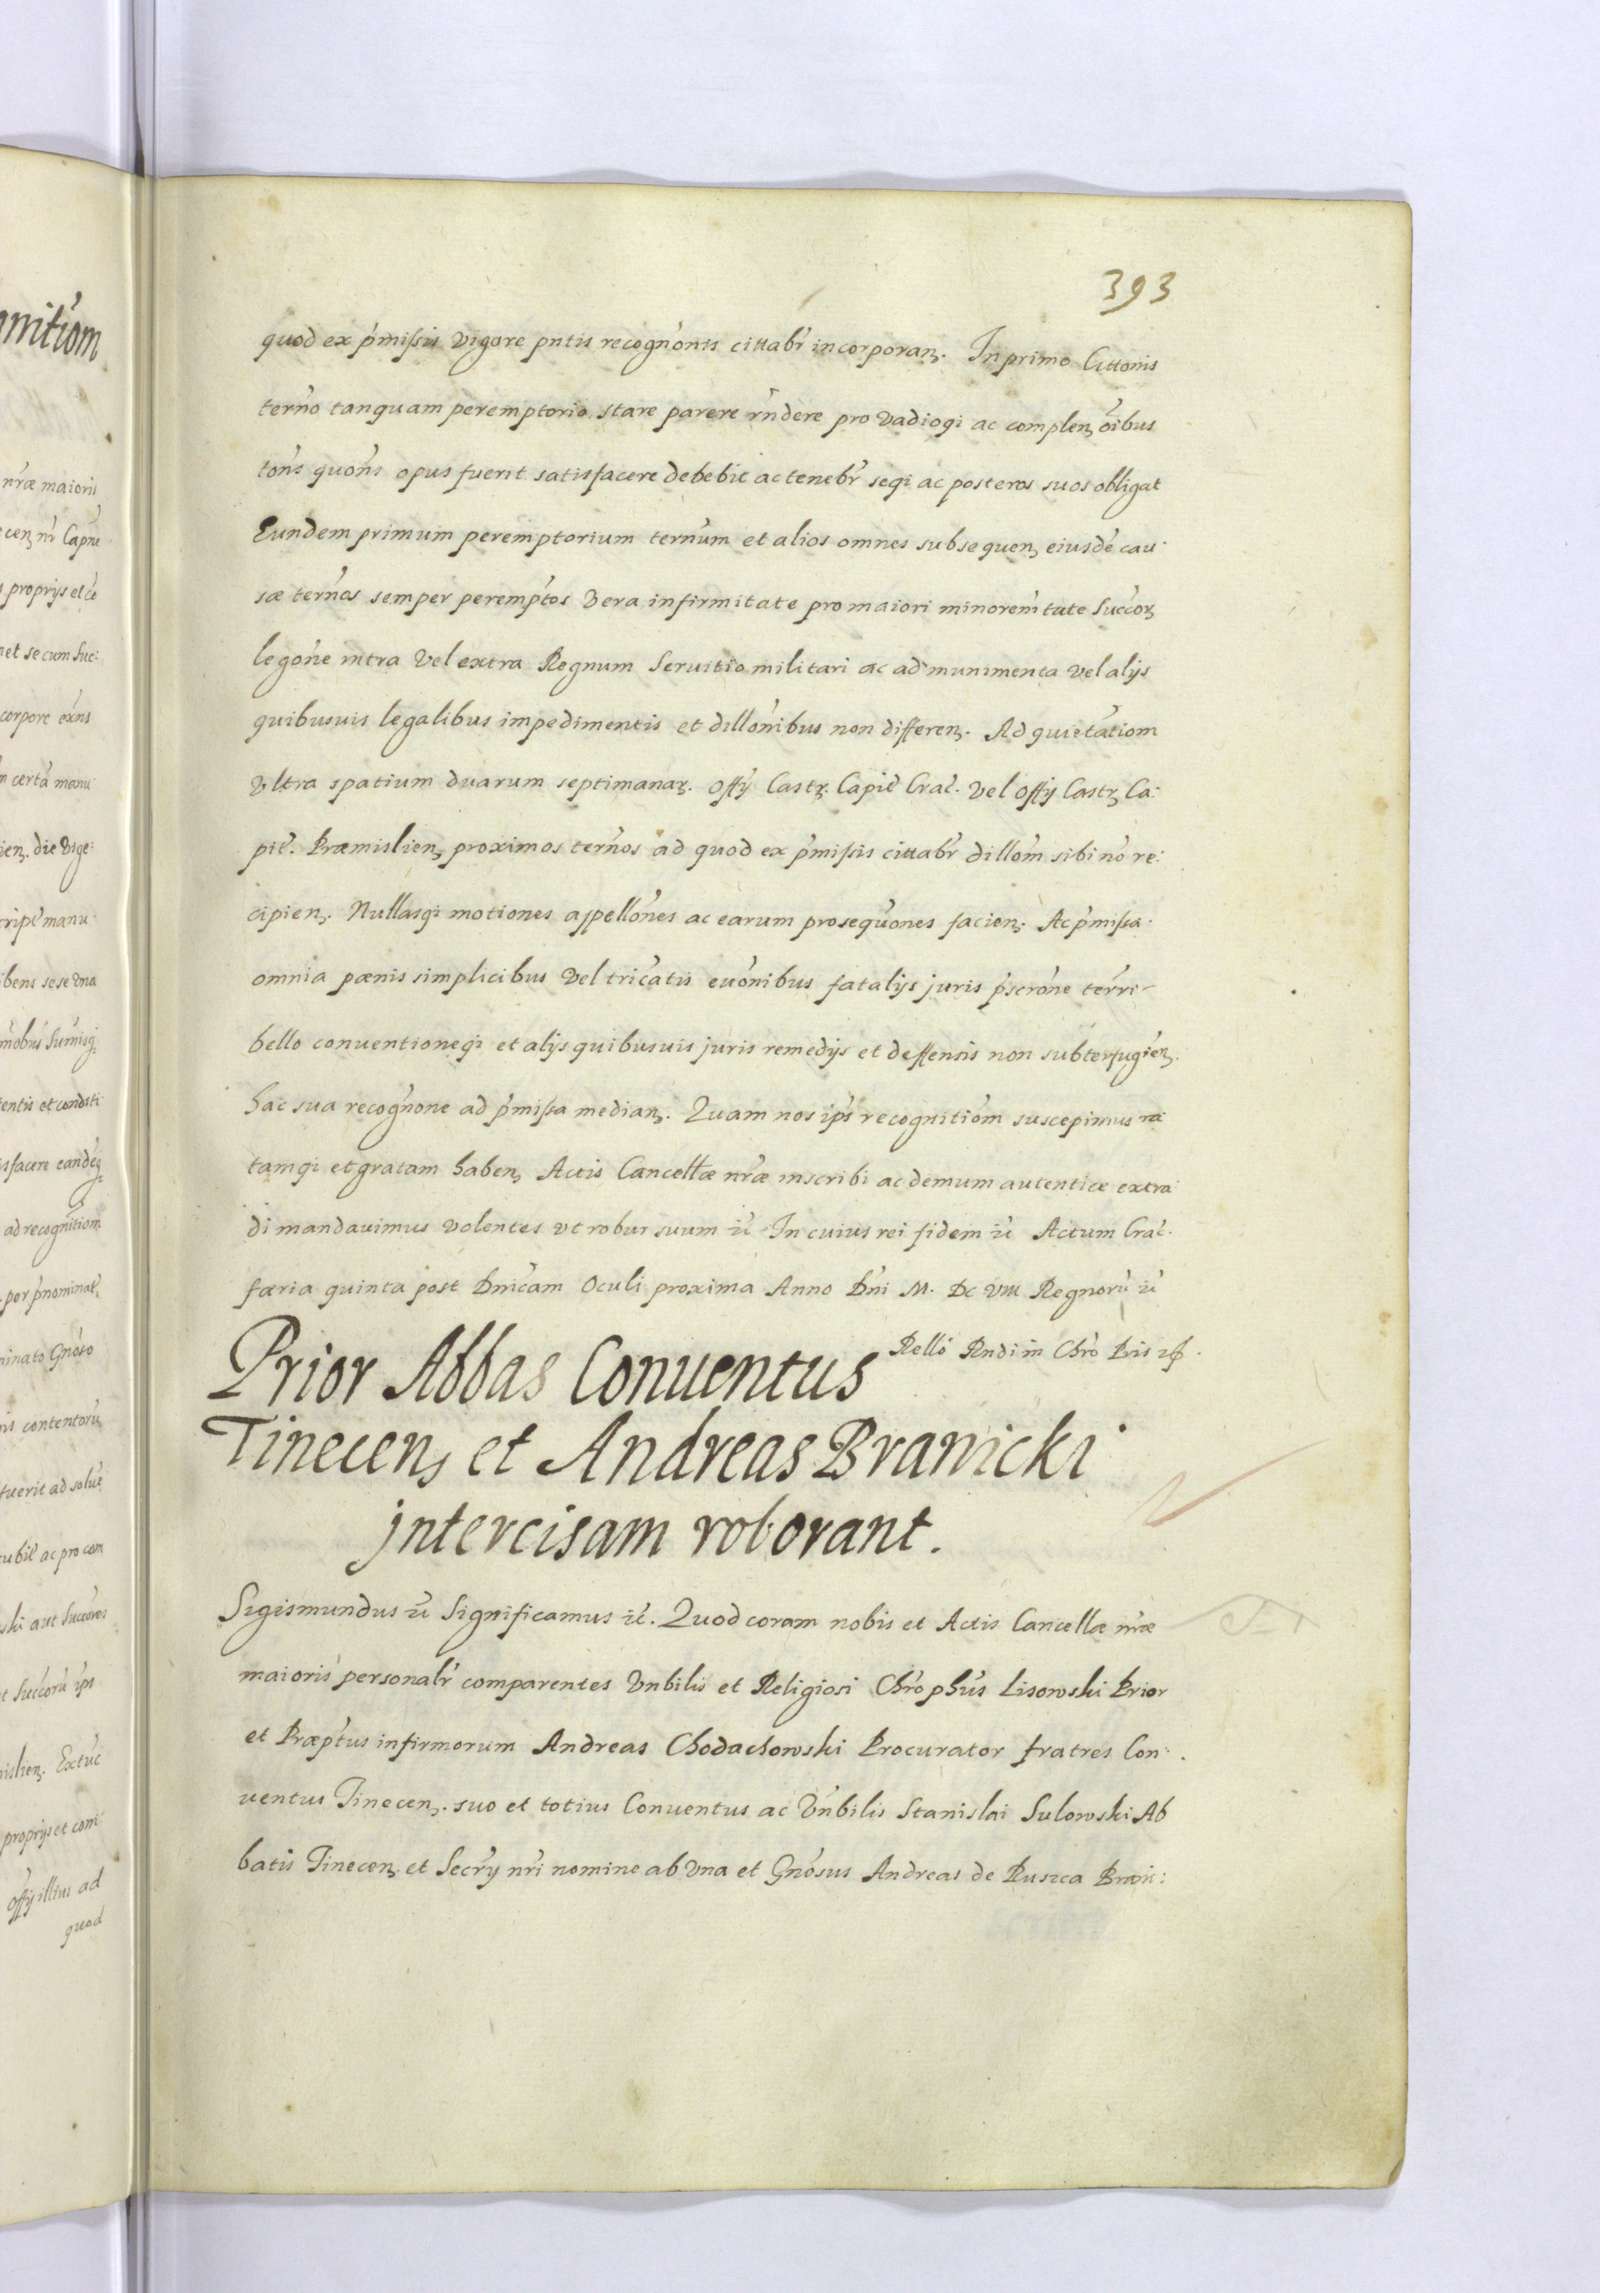 393
quod ex p̃missis vigore pntis recogn̓onis cittabr̓ incorporan. In primo Citt̓onis
tern̓o tanquam peremptorio stare parere r̓ndere pro vadioq̨ ac complen̨ o̓ibus
to̓ns quo̓ns opus fuerit satisfacere debebit ac tenebr̓ seq̨ ac posteros suos obligat
Eundem primum peremptorium tern̓um et alios omnes subsequen̨ eiusde̓ cau
sæ tern̓os semper peremp̓tos vera infirmitate pro maiori minorem̓ tute Succ̓or̨
lego̓ne intra vel extra Regnum Servitio militari ac ad munimenta vel alijs
quibusuis legalibus impedimentis et dillo̓nibus non differen̨. Ad quietatio̓m
Vltra spatium duarum septimanar̨. Offij Castr̨. Capit̓ Crac̓. vel Offij Castr̨ Ca:
pit̓. Præmislien̨ proximos tern̓os ad quod ex p̓missis cittabr̓ dillo̓m sibi no̓ re:
cipien̨. Nullasq̨ motiones appello̓nes ac earum prosequ̓ones facien̨. Ac p̓missa
omnia pænis simplicibus vel tric̓atis evo̓nibus fatalijs juris p̓scro̓ne ter̓re
bello conventioneq̨ et alijs quibusuis juris remedijs et deffensis non subterfugien̨
hac sua recogn̓one ad p̓missa median̨. Quam nos ip̓s recognitio̓m suscepimus ra
tamq̨ et gratam haben̨ Actis Cancellæ nr̓æ inscribi ac demum autentice extra
di mandauimus volentes vt robur suum &c̓ In cuius rei fidem &c̓ Actum Crac̓.
færia quinta post Dnic̓am Oculi proxima Anno Dn̓i M. DC VIII Regnoru̓ &c̓
Rello̓ Rndi in Chr̓o Pris
Prior Abbas Conuentus
Tinecen̨ et Andreas Branicki
jntercisam roborant.
Sigismundus &c̓ Significamus &c̓. Quod coram nobis et Actis Cancellæ nr̓æ
maioris personalr̓ comparentes Vnbilis et Religiosi Chr̓oph̓us Lisowski Prior
et Præp̓tus infirmorum Andreas Chodachowski Procurator fratres Con
uentus Tinecen̨. suo et totius Conuentus ac Vn̓bilis Stanislai Sulowski Ab
batis Tinecen̨ et Secr̓ij nr̓i nomine ab vna et Gn̓osus Andreas de Ruszca Brani: